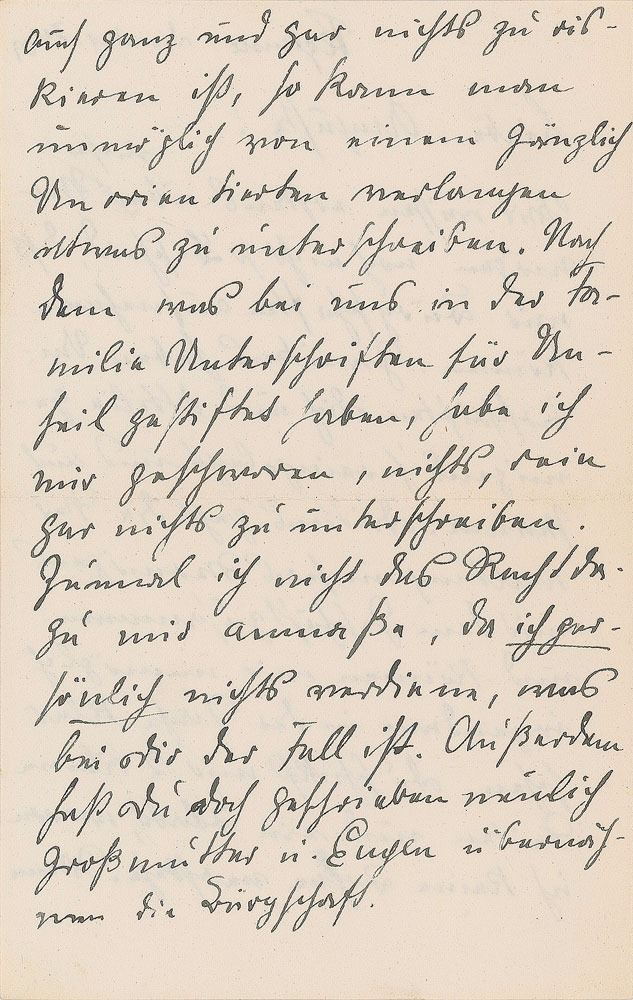 auch ganz und gar nichts zu ris-
kieren ist, so kann man
unmöglich von einem gänzlich
Unorientierten verlangen
etwas zu unterschreiben. Nach
dem was bei uns in der Fa-
milie Unterschriften für Un-
heil gestiftet haben, habe ich
mir geschworen, nichts, rein
gar nichts zu unterschreiben.
Zumal ich nicht das Recht da-
zu mir anmaße, da ich per-
sönlich nichts verdiene, was
bei dir der Fall ist. Außerdem
hast du doch geschrieben neulich
Großmutter u. Eugen übernäh-
men die Bürgschaft.